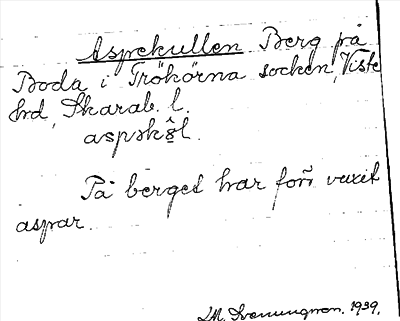 Aspekullen Berg på
Boda i Trökörna socken, Viste
hrd, Skarab. l.
aspskö̂l.
På berget har förr vuxit
aspar.
M. 1939.